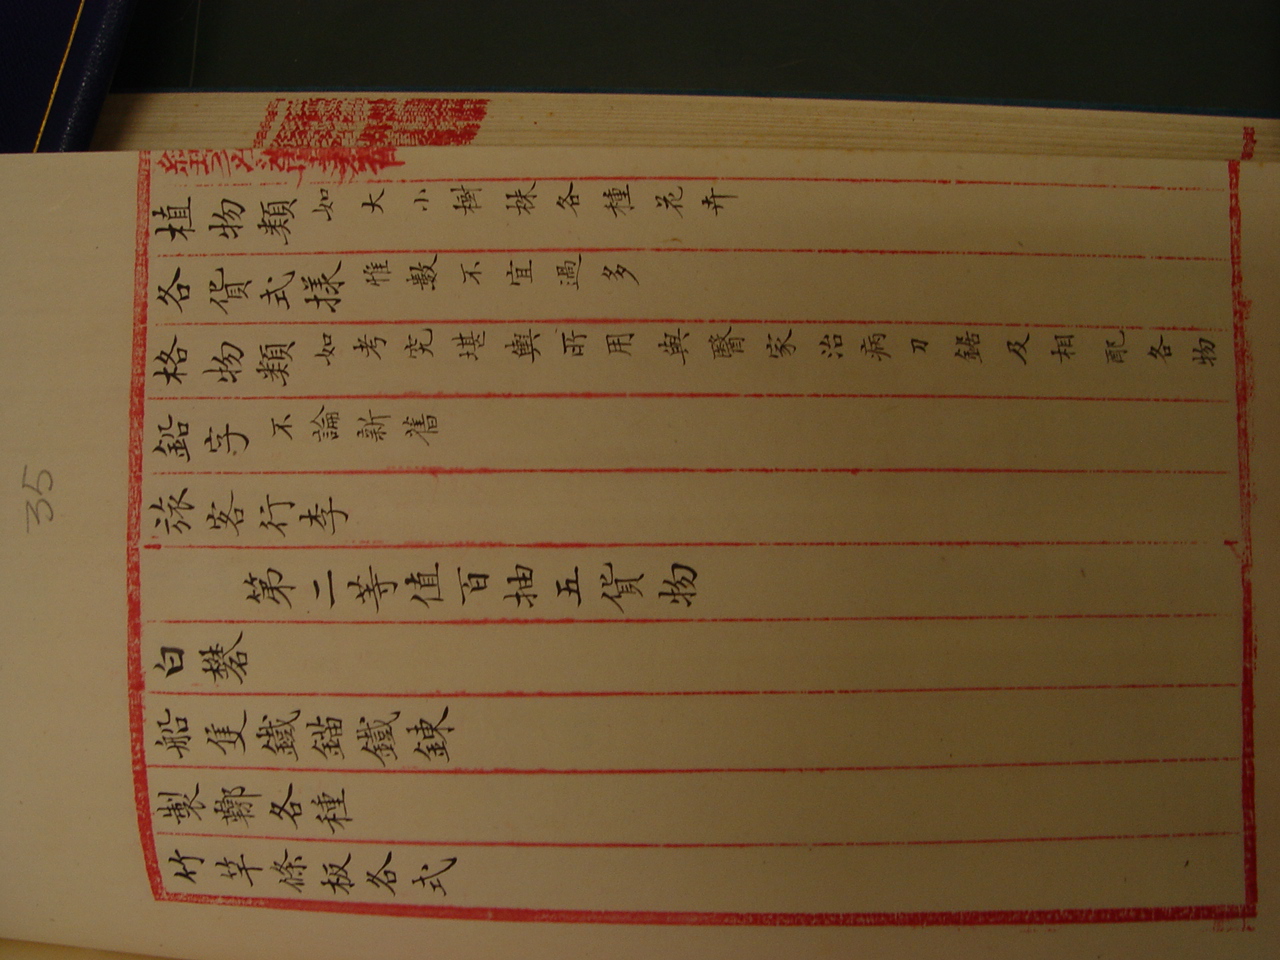 植物類如大小樹株各種花卉
各貨式樣惟數不宜過多
格物類如考究堪輿所用與醫家治病刀鋸及相配各物
鉛字不論新舊
旅客行李
第二等值百抽五貨物
白礬
船隻鐵錨鐵鍊
製鞹各種
竹竿條板各式
35